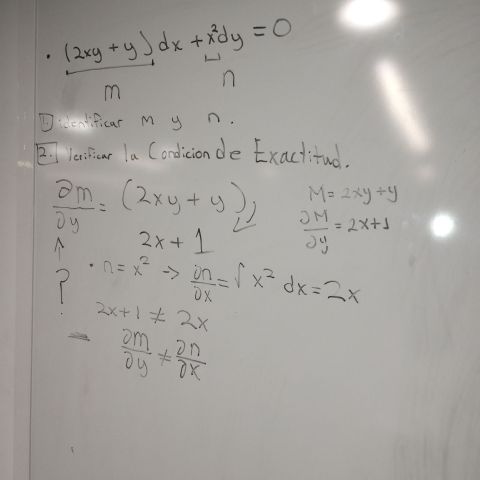 • (2xy + y) dx + x²dy = 0
m n
1. identificar m y n.
2. Verificar la Condicion de Exactitud.
∂m/∂y = (2xy + y)
2x + 1
M = 2xy + y
∂M/∂y = 2x+1
↑
?
• n = x² → ∂n/∂x = ∫ x² dx = 2x
2x+1 ≠ 2x
= ∂m/∂y ≠ ∂n/∂x